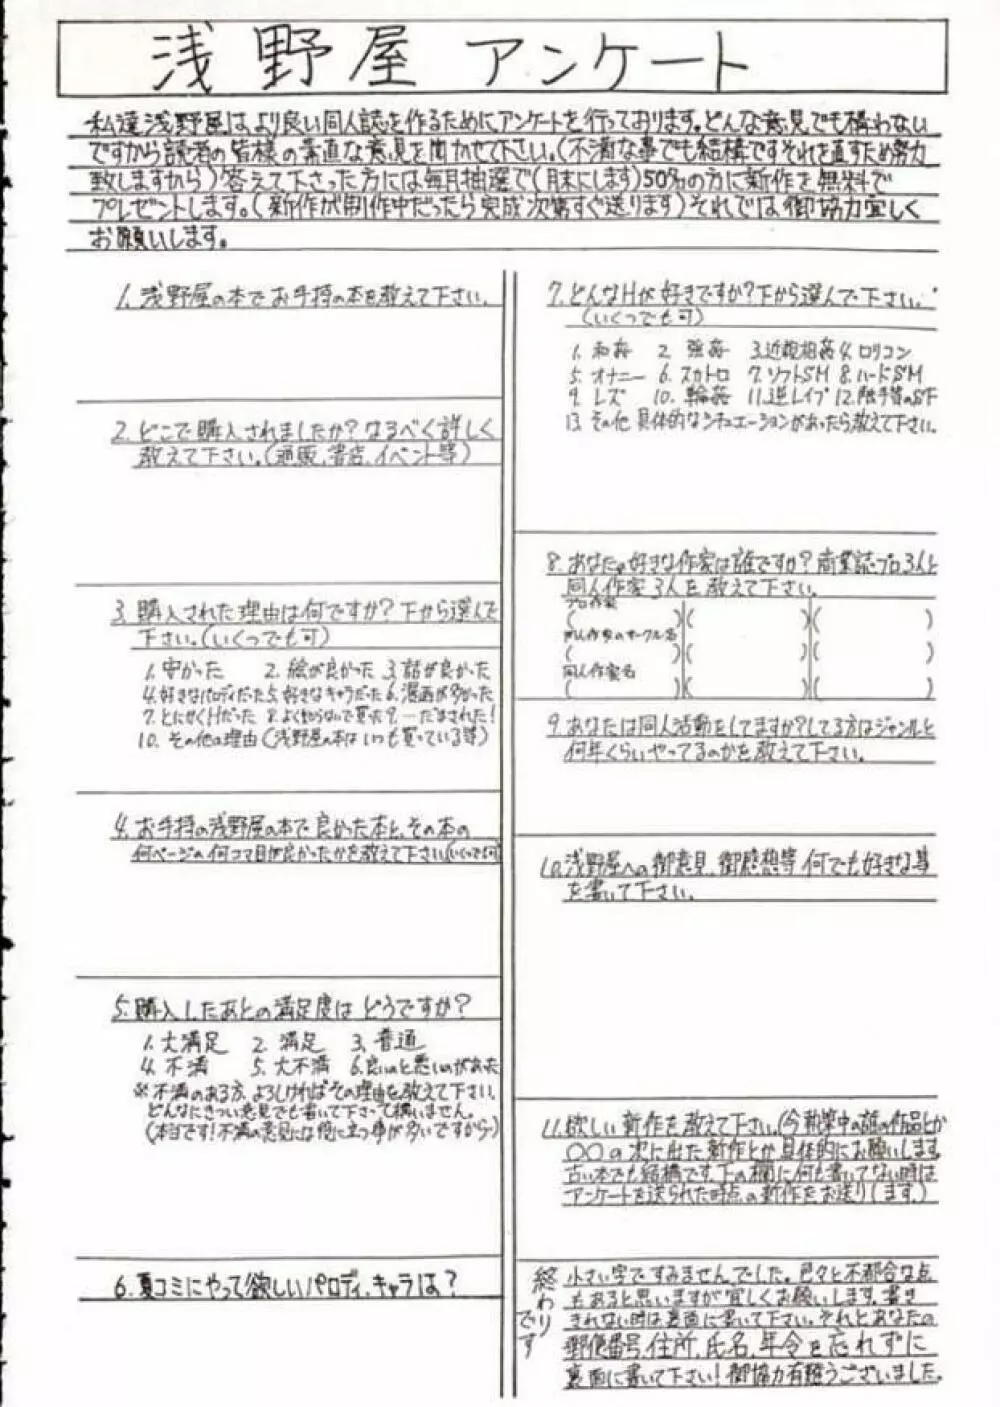 浅野屋 アンケート
私達浅野屋は、より良い同人誌を作るためにアンケートを行っております。どんな意見でも構わない
ですから読者の皆様の素直な意見を聞かせて下さい。(不満な事でも結構ですそれを直すため努力
致しますから)答えて下さった方には毎月抽選で(月末にします)50名の方に新作を無料で
プレゼントします。(新作が制作中だったら完成次第すぐ送ります)それでは御協力宜しく
お願いします。
1. 浅野屋の本でお手持の本を教えて下さい。
2. どこで購入されましたか?なるべく詳しく
教えて下さい。(通販、書店、イベント等)
3. 購入された理由は何ですか?下から選んで
下さい。(いくつでも可)
1. 安かった 2. 絵が良かった 3. 話が良かった
4. 好きなパロディだった 5. 好きなキャラだった 6. 漫画が多かった
7. とにかくHだった 8. よく知らないで買った 9. 一だまされた!
10. その他の理由(浅野屋の本はいつも買っている等)
4. お手持の浅野屋の本で良かった本と、その本の
何ページの何コマ目が良かったかを教えて下さい(いくつでも可)
5. 購入したあとの満足度はどうですか?
1. 大満足 2. 満足 3. 普通
4. 不満 5. 大不満 6. 良いのと悪いのがあった
※不満のある方、よろしければその理由を教えて下さい。
どんなにきつい意見でも書いて下さって構いません。
(本当です!不満の意見には役に立つ事が多いですから)
6. 夏コミにやって欲しいパロディ、キャラは?
7. どんなHが好きですか?下から選んで下さい。
(いくつでも可)
1. 和姦 2. 強姦 3. 近親相姦 4. ロリコン
5. オナニー 6. スカトロ 7. ソフトSM 8. ハードSM
9. レズ 10. 輪姦 11. 逆レイプ 12. 触手等のSF
13. その他 具体的なシチュエーションがあったら教えて下さい。
8. あなたの好きな作家は誰ですか?商業誌・プロ3人と
同人作家3人を教えて下さい。
プロ作家
( )( )( )
同人作家のサークル名
( )( )( )
同人作家名
( )( )( )
9. あなたは同人活動をしてますか?してる方はジャンルと
何年くらいやってるのかを教えて下さい。
10. 浅野屋への御意見、御感想等 何でも好きな事
を書いて下さい。
11. 欲しい新作を教えて下さい。(今執筆中の誰の作品とか
〇〇の次に出た新作とか具体的にお願いします。
古い本でも結構です。下の欄に何も書いてない時は
アンケートを送られた時点の新作をお送りします。)
終わりです
小さい字ですみませんでした。色々と不都合な点
もあると思いますが宜しくお願いします。書き
きれない時は裏面に書いて下さい。それとあなたの
郵便番号、住所、氏名、年令を忘れずに
裏面に書いて下さい!御協力有難うございました。